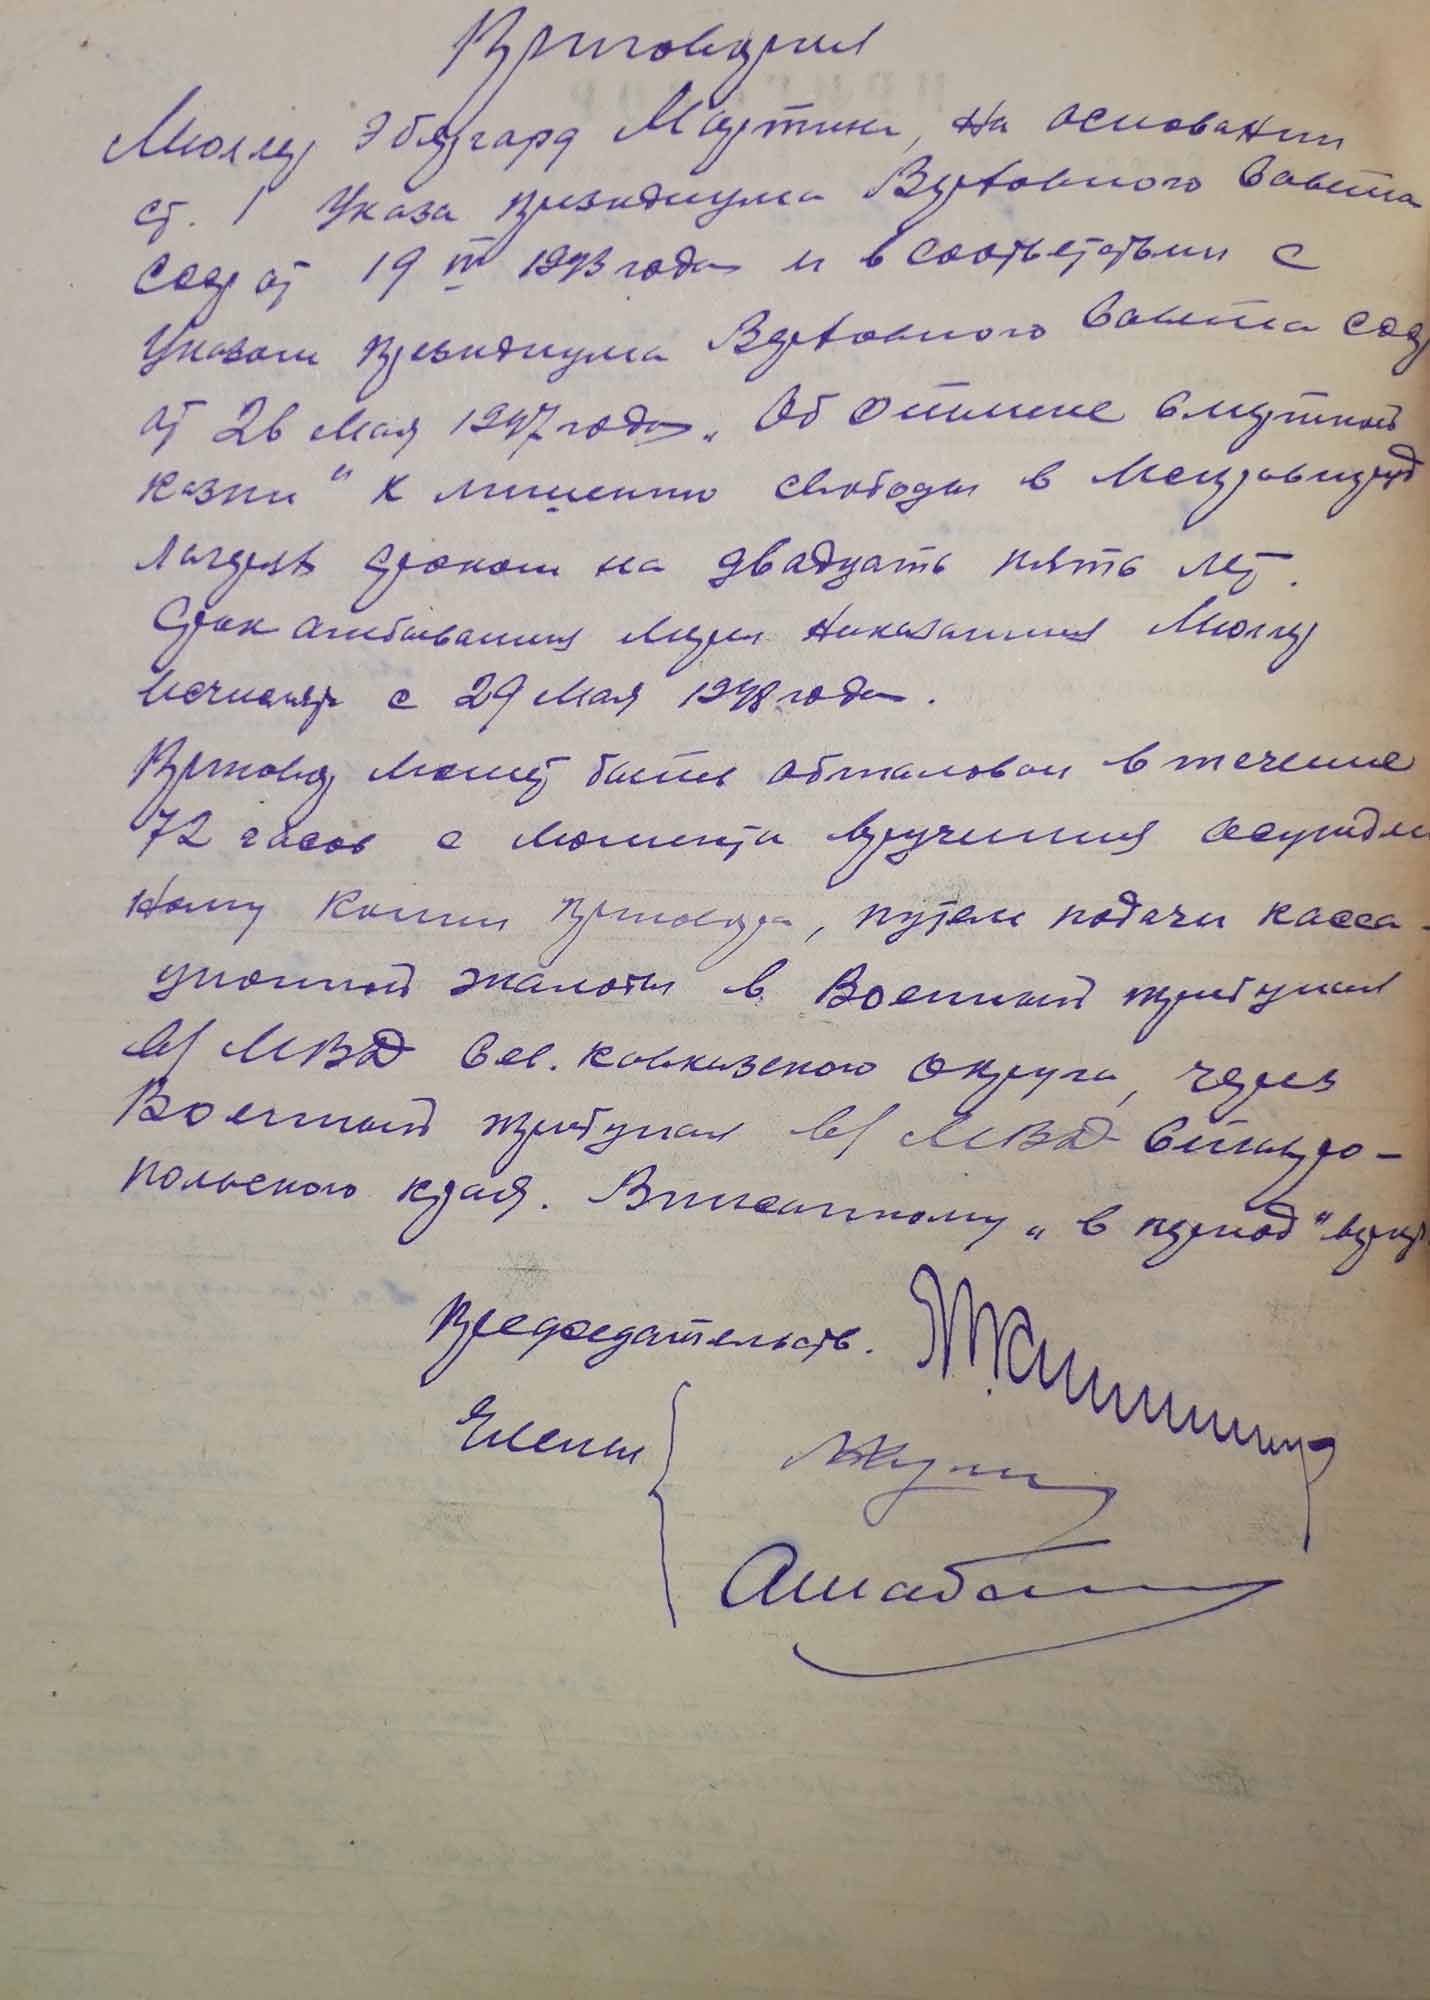 Приговорил
Мюллер Эбергард Мартина, на основании
ст. 1 Указа президиума Верховного Совета
ССР от 19 IV 1943 года и в соответствии с
Указом президиума Верховного Совета ССР
от 26 мая 1947 года „Об отмене смертной
казни" к лишению свободы в Исправтруд
лагерь сроком на двадцать пять лет.
Срок отбывания меры наказания Мюллер
исчислять с 29 мая 1948 года.
Приговор может быть обжалован в течение
72 часов с момента вручения осужден
ному копии приговора, путем подачи касса-
ционной жалобы в Военный трибунал
в/ МВД Сев. Кавказского округа, через
Военный трибунал в/ МВД Ставро-
польского края. Вписанному „в период"
Председательств.
Члены